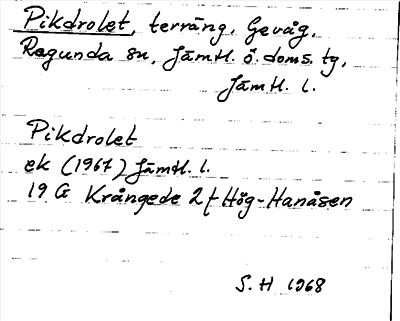 Pikdrolet, terräng, Gevåg,
Ragunda sn, Jämtl. ö. doms. tg,
Jämtl. l.
Pikdrolet
ek (1967) Jämtl. l.
19 G Krångede 2f Hög-Hanåsen
S. H 1968